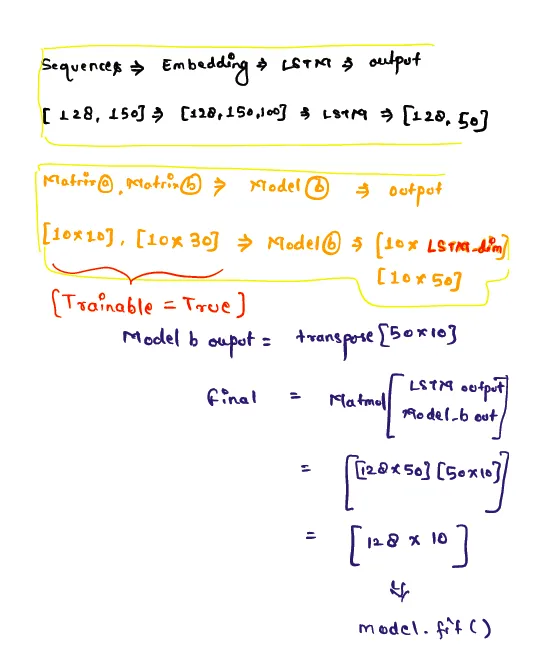 Sequences ⇒ Embedding ⇒ LSTM ⇒ output
[128, 150] ⇒ [128,150,100] ⇒ LSTM ⇒ [128, 50]
Matrix ⓐ, Matrix ⓑ ⇒ Model ⓑ ⇒ output
[10x10], [10x30] ⇒ Model ⓑ ⇒ [10x LSTM_dim]
[10x50]
[Trainable = True]
Model b ouput = transpose [50x10]
final = Matmul [LSTM output
Model_b out]
= [[128x50] [50x10]]
= [128 x 10]
⇓
model.fit()